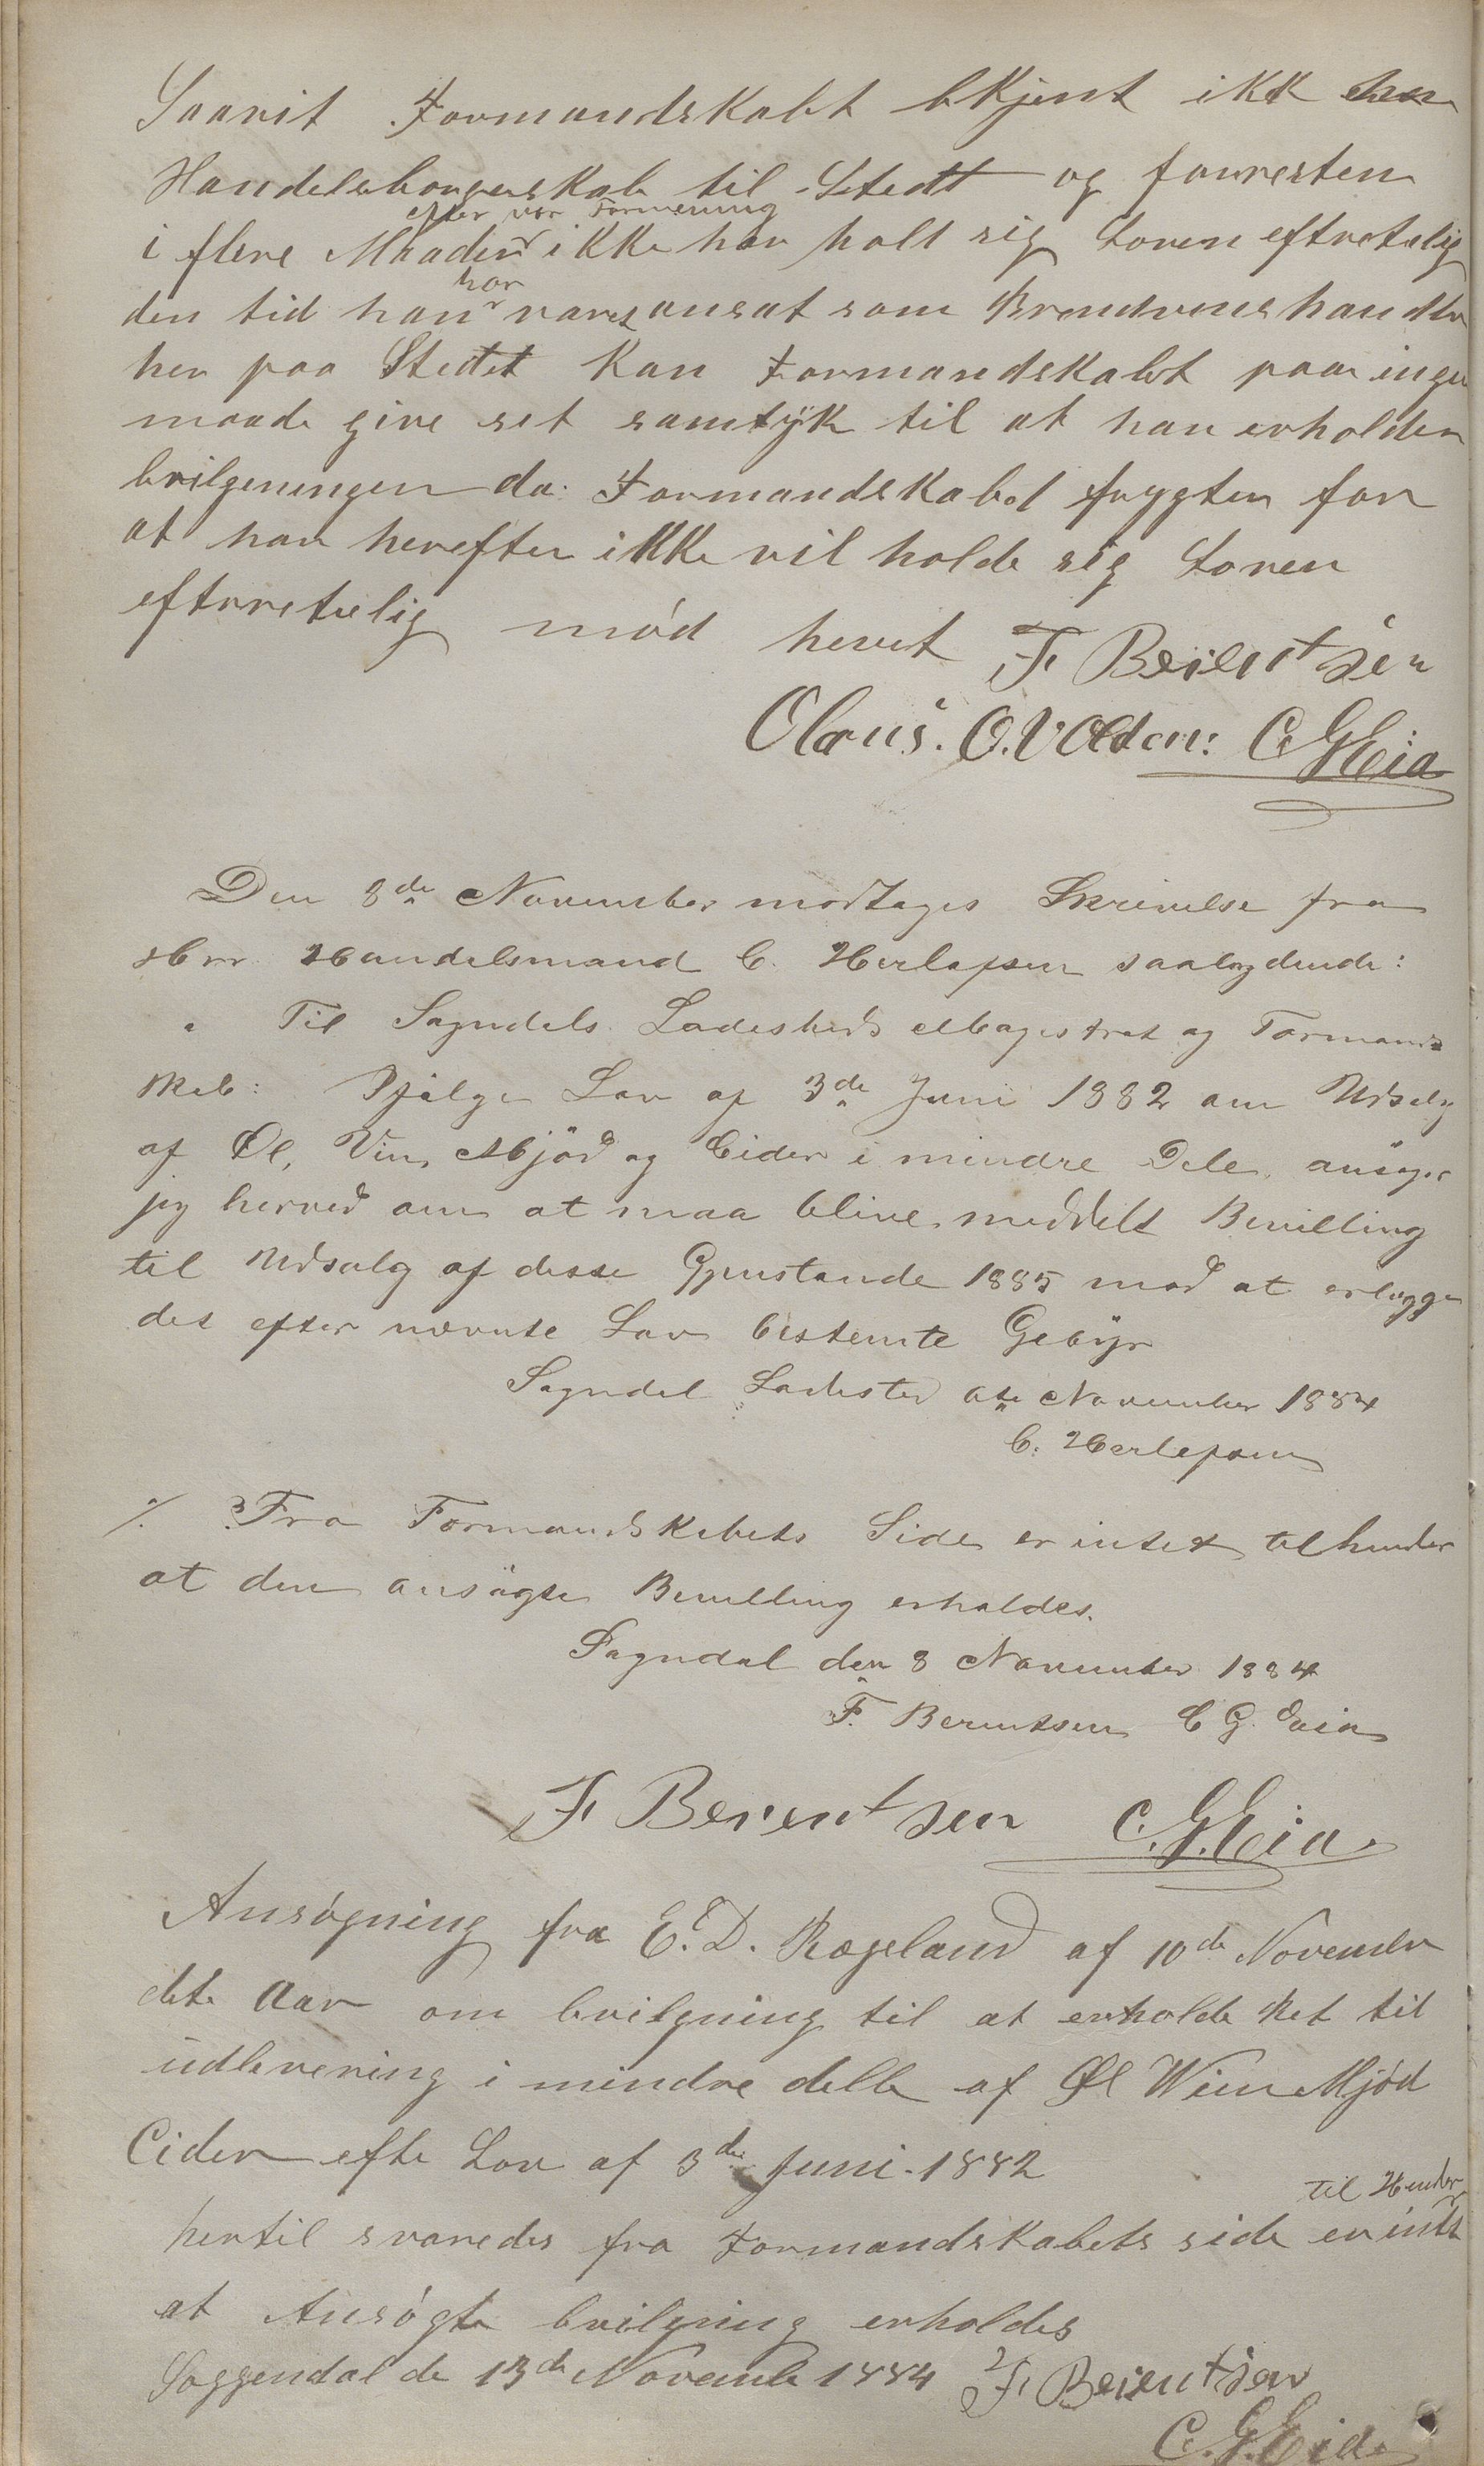 Saavit Formandskabet bkjent ikk har
Handelsborgerskab til Stedt og fovresten
efter vor Formening
i flere Maader ikke har holt sig Loven eftretelig
har
den tid han varet ansat som Brendvinshandler
her paa Stedet kan Formandskabet paa ingen
maade give set samtÿk til at han erholder
bvilgeningen da Formandskabet frygter for
at han herefter ikke vil holde sig Loven
eftrretelig mød hevet F Berentsen
Olaus. O. Volden: C G Eia
Den 8de November modtages Skrivelse fra
Hrr Handelsmand C. Herlofsen saalydende:
" Til Sogndals Ladesteds Magistrat og Formand
skab: Ifølge Lov af 3de Juni 1882 om Udsalg
af Øl, Vin, Mjød og Cider i mindre Dele, ansøger
jeg herved om at maa blive meddelt Bevilling
til Udsalg af disse Gjenstande 1885 mod at erlægge
det efter nævnte Lov bestemte Gebÿr
Sogndal Ladested November 1884
C. Herlofsen
Fra Formandskabets Side er intet til hinder
at den ansøgte Bevilling erholdes.
Sogndal den 8 November 1884
F. Berentsen C G. Eia
F Berentsen C. G. Eia.
Ansøgning fra E. D. Rægeland af 10de November
dete Aar om bvilgning til at erholde Ret til
udlevering i mindre delle af Øl Wiin Mjød
Cider efte Lov af 3die Juni 1882
til Hender
hertil svaredes fra Formandskabets side er intet
at Ansøgte bvilgning erholdes
Soggendal de 13de Novembe 1884 F. Berentsen
C. G. Eide